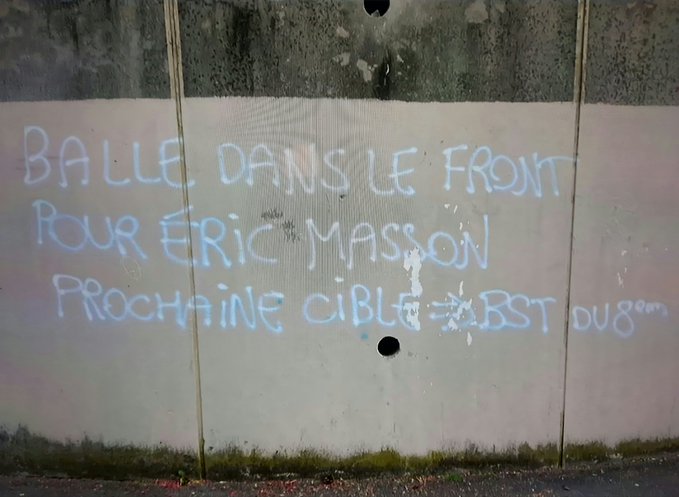 BALLE DANS LE FRONT
POUR ÉRIC MASSON
PROCHAINE CIBLE ⇒ BST DU 8em